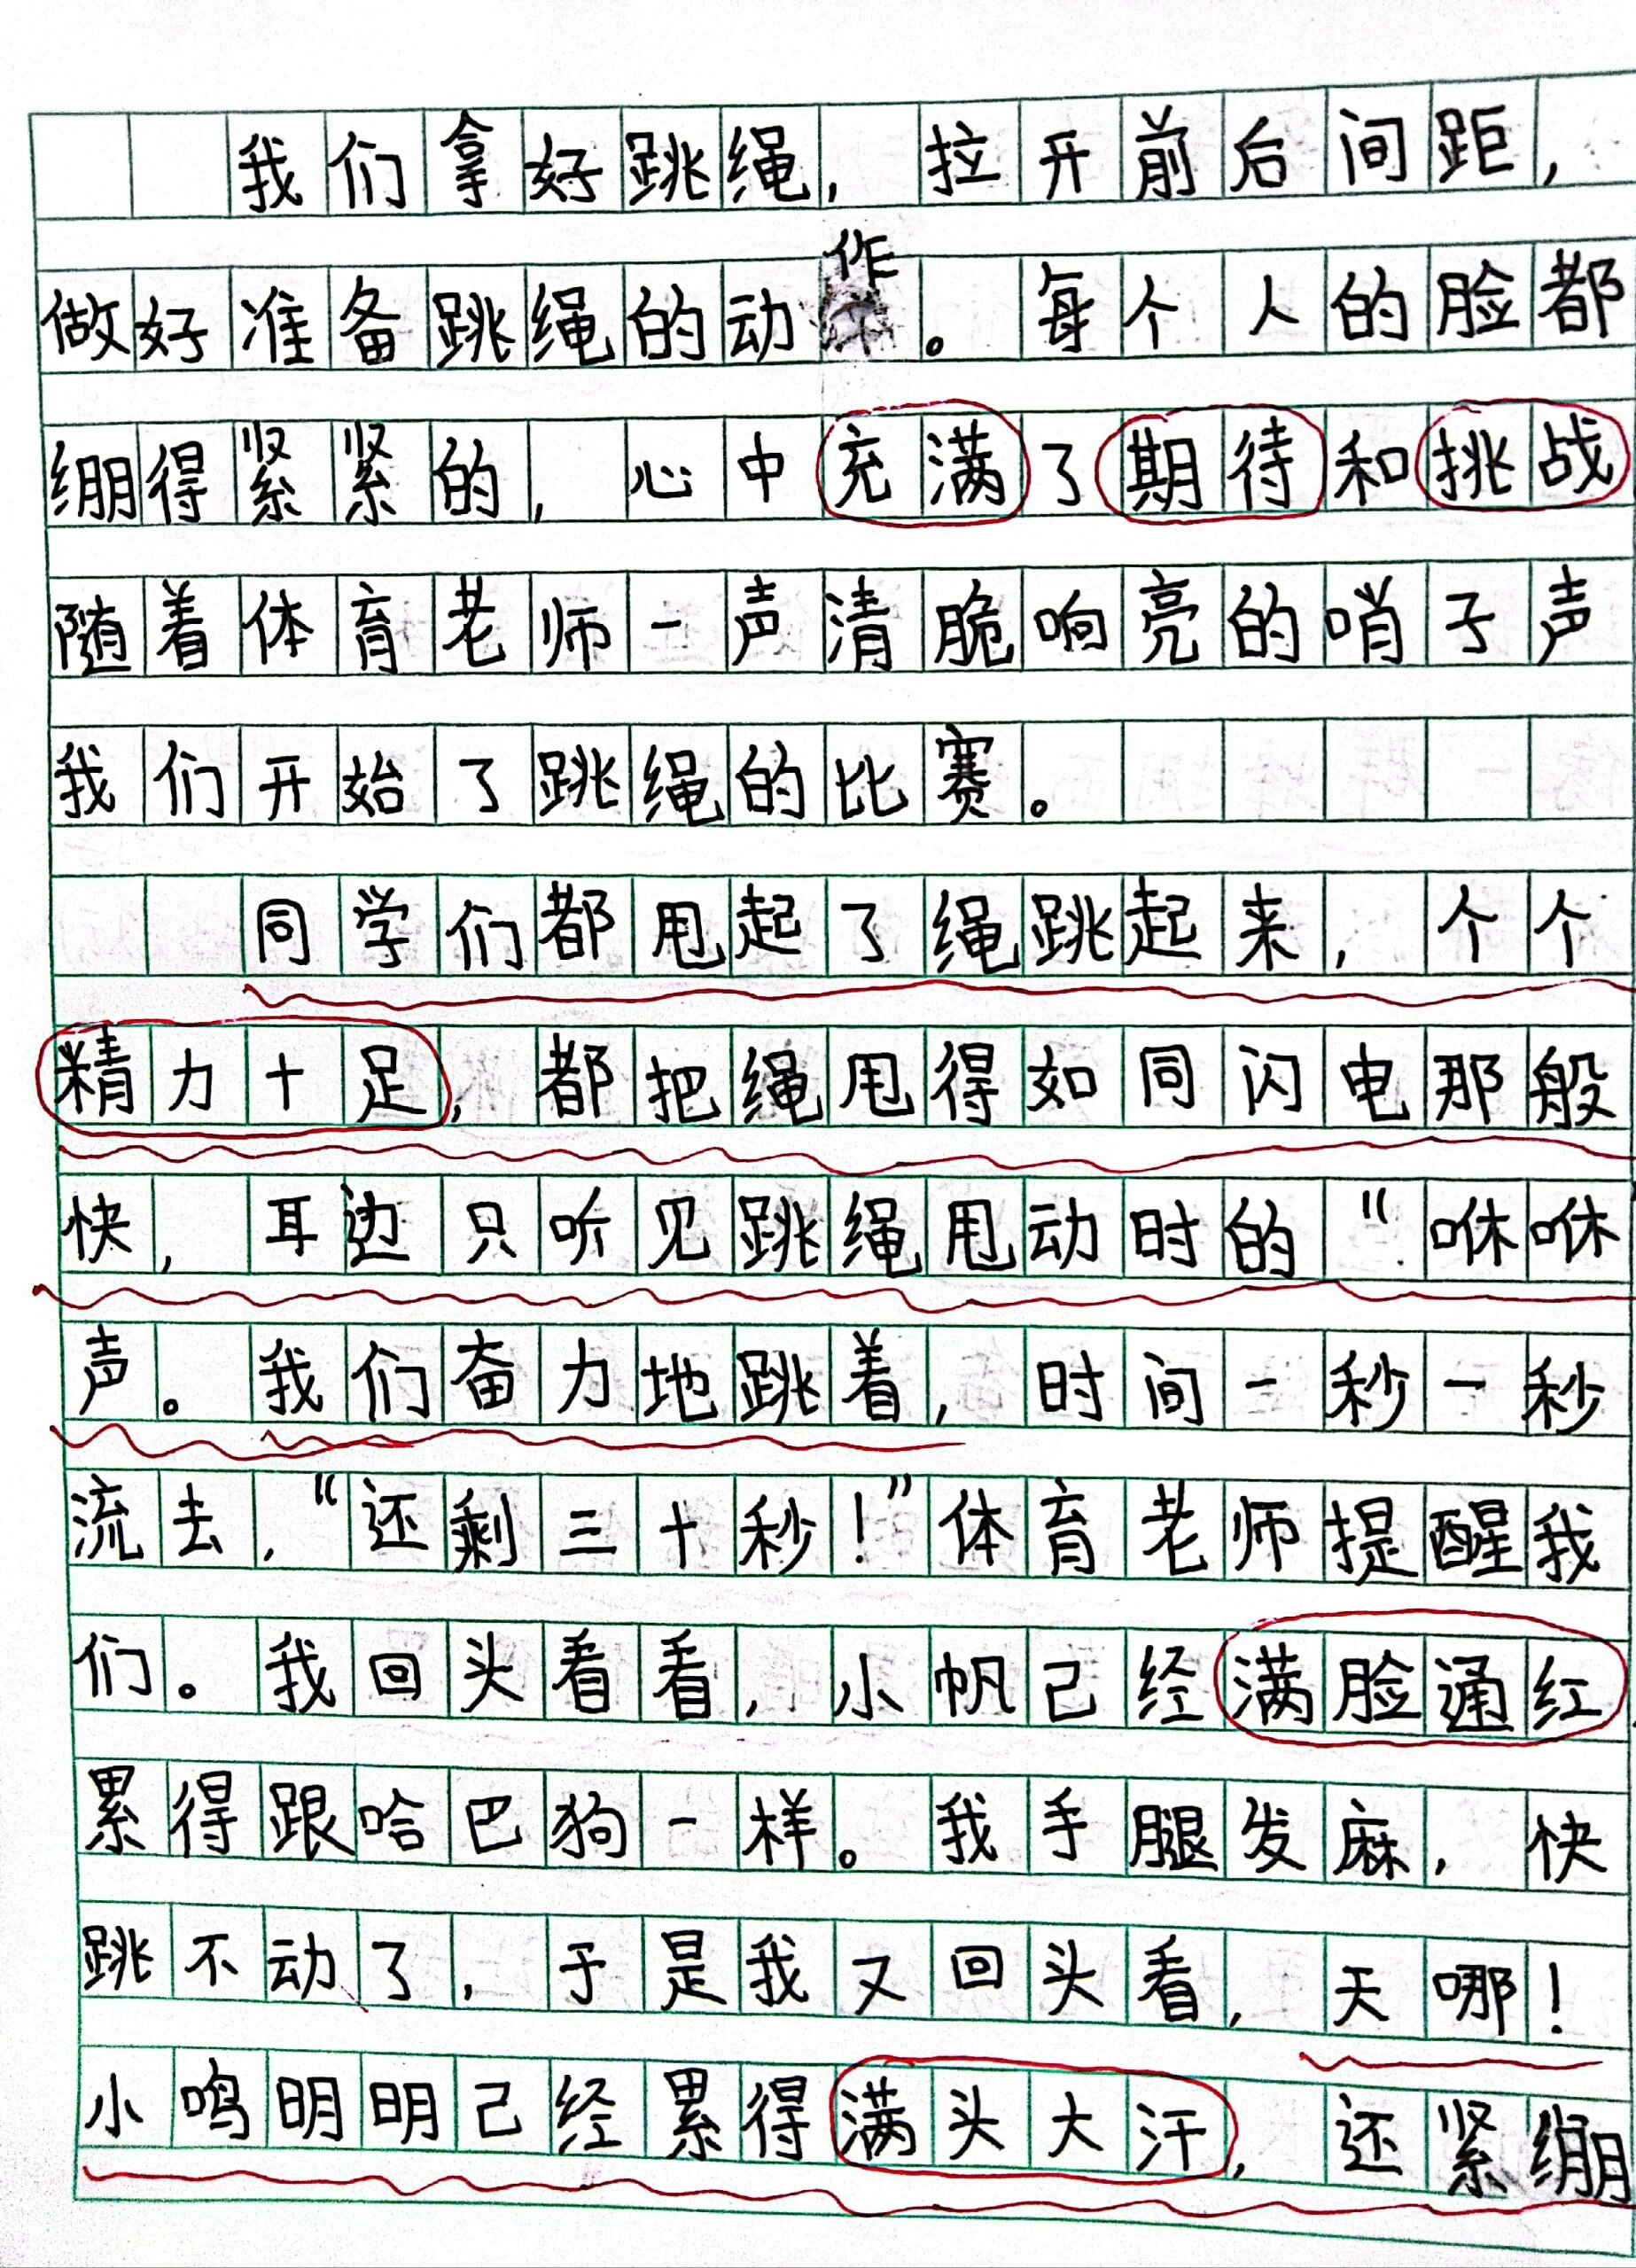 我们拿好跳绳，拉开前后间距，
做好准备跳绳的动作。每个人的脸都
绷得紧紧的，心中充满了期待和挑战
随着体育老师一声清脆响亮的哨子声
我们开始了跳绳的比赛。
同学们都甩起了绳跳起来，个个
精力十足，都把绳甩得如同闪电那般
快，耳边只听见跳绳甩动时的“咻咻
声。我们奋力地跳着，时间一秒一秒
流去，“还剩三十秒！”体育老师提醒我
们。我回头看看，小帆己经满脸通红
累得跟哈巴狗一样。我手腿发麻，快
跳不动了，于是我又回头看，天哪！
小鸣明明己经累得满头大汗，还紧绷